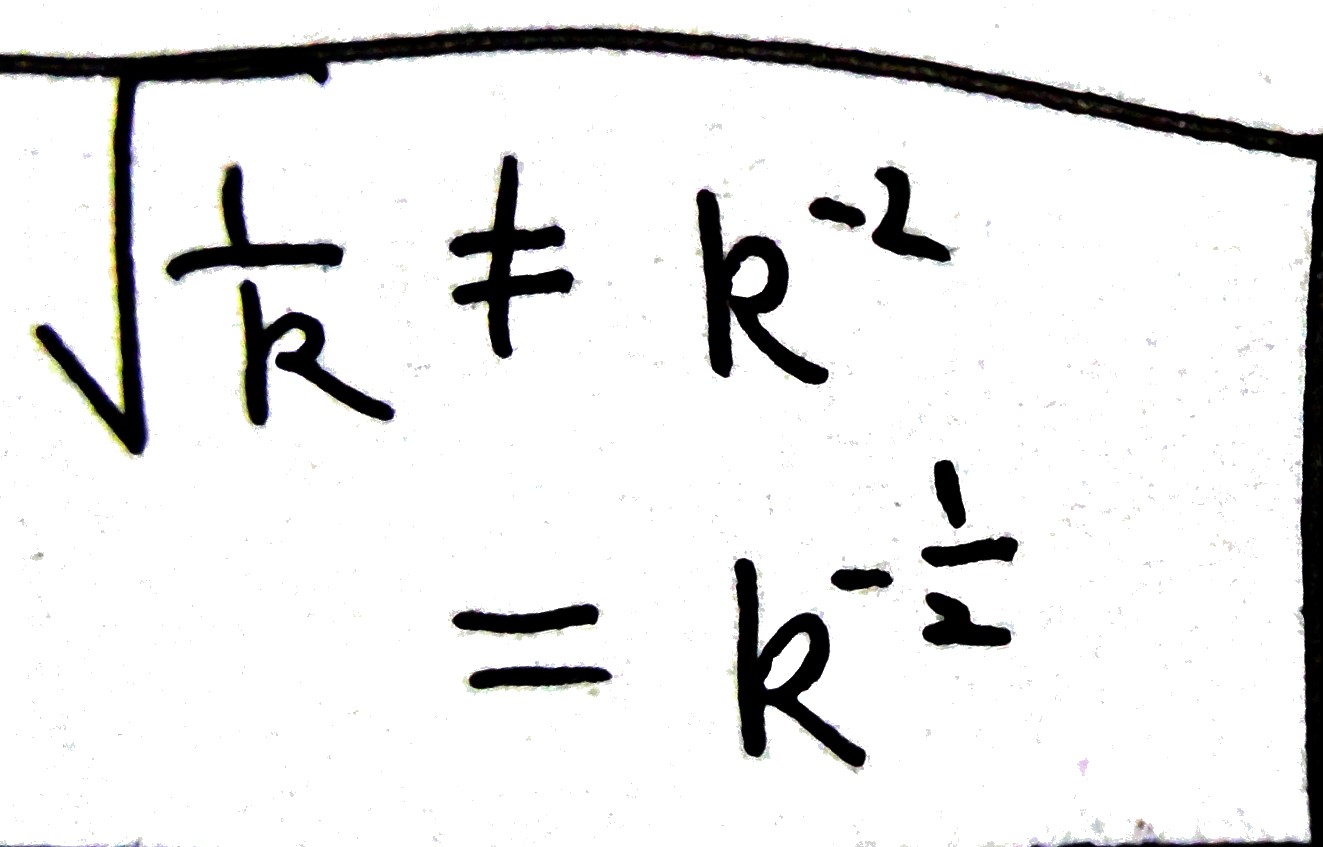 √(1/k) ≠ k^(-2)
= k^(-1/2)